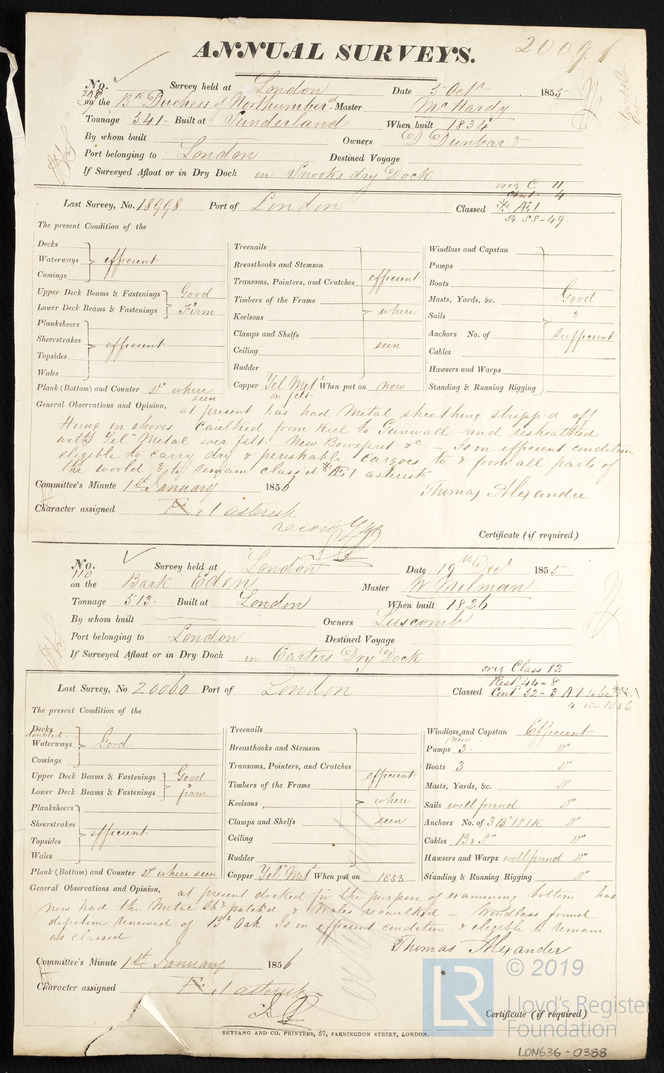 ANNUAL SURVEYS.
20091
No. Survey held at London Date 5 Octr 1855
on the Bk Duchess of Northumberd Master McHardy
Tonnage 541 Built at Sunderland When built 1834
By whom built Owners D Dunbar
Port belonging to London Destined Voyage
If Surveyed Afloat or in Dry Dock in Snooks dry Dock
orig C 11
Cont 4
Last Survey, No. 18998 Port of London Classed Æ1
54 58-49.
The present Condition of the
Decks
Waterways efficient
Comings
Upper Deck Beams & Fastenings Good
Lower Deck Beams & Fastenings Firm
Planksheers
Sheerstrakes efficient
Topsides
Wales
Plank (Bottom) and Counter Do where seen
Treenails
Breasthooks and Stemson
Transoms, Pointers, and Crutches efficient
Timbers of the Frame where
Keelsons
Clamps and Shelfs
Ceiling seen
Rudder
Copper Yel Metl on felt When put on now
Windlass and Capstan
Pumps
Boats
Masts, Yards, &c. Good
Sails &
Anchors No. of Sufficient
Cables
Hawsers and Warps
Standing & Running Rigging
General Observations and Opinion, at present has had Metal sheathing stripp'd off
Hung in shores caulked from Keel to Gunwall and resheathed
with Yel Metal over felt New Bowsprit &c Is in efficient condition
eligible to carry dry & perishable cargoes to & from all parts of
the world & to remain class'd Æ1 asterisk
Thomas Alexander
Committee's Minute 1st January 1856
Character assigned Æ 1 asterisk
Certificate (if required)
No. 110 Survey held at London Date 19th Decr 1855
on the Bark Eden Master
Tonnage 513 Built at London When built 1826
By whom built Owners Luscomb
Port belonging to London Destined Voyage
If Surveyed Afloat or in Dry Dock in Carters Dry Dock
orig Class 12
Rest 44-8
Last Survey, No 20060 Port of London Classed Cont 52-3 A1
The present Condition of the
Decks doubled
Waterways Good
Comings
Upper Deck Beams & Fastenings Good
Lower Deck Beams & Fastenings firm
Planksheers
Sheerstrakes efficient
Topsides
Wales
Plank (Bottom) and Counter Do where seen
Treenails
Breasthooks and Stemson
Transoms, Pointers, and Crutches
Timbers of the Frame efficient
Keelsons where
Clamps and Shelfs seen
Ceiling
Rudder
Copper Yel Met When put on 1853
Windlass and Capstan Efficient
Pumps new 3 Do
Boats 3 Do
Masts, Yards, &c. Do
Sails well found Do
Anchors No. of 3 B 1 S 1 K Do
Cables Do
Hawsers and Warps well found Do
Standing & Running Rigging Do
General Observations and Opinion, at present docked for the purpose of examining bottom has
now had the Metal patch'd & Wales recaulked - Windlass found
defective renewed of Oak Is in efficient condition & eligible to remain
as classed
Thomas Alexander
Committee's Minute 1st January 1856
Character assigned Æ 1 asterisk
Certificate (if required)
SEYFANG AND CO. PRINTERS, 57, FARRINGDON STREET, LONDON.
LR © 2019
Lloyd's Register
Foundation
LON636-0388